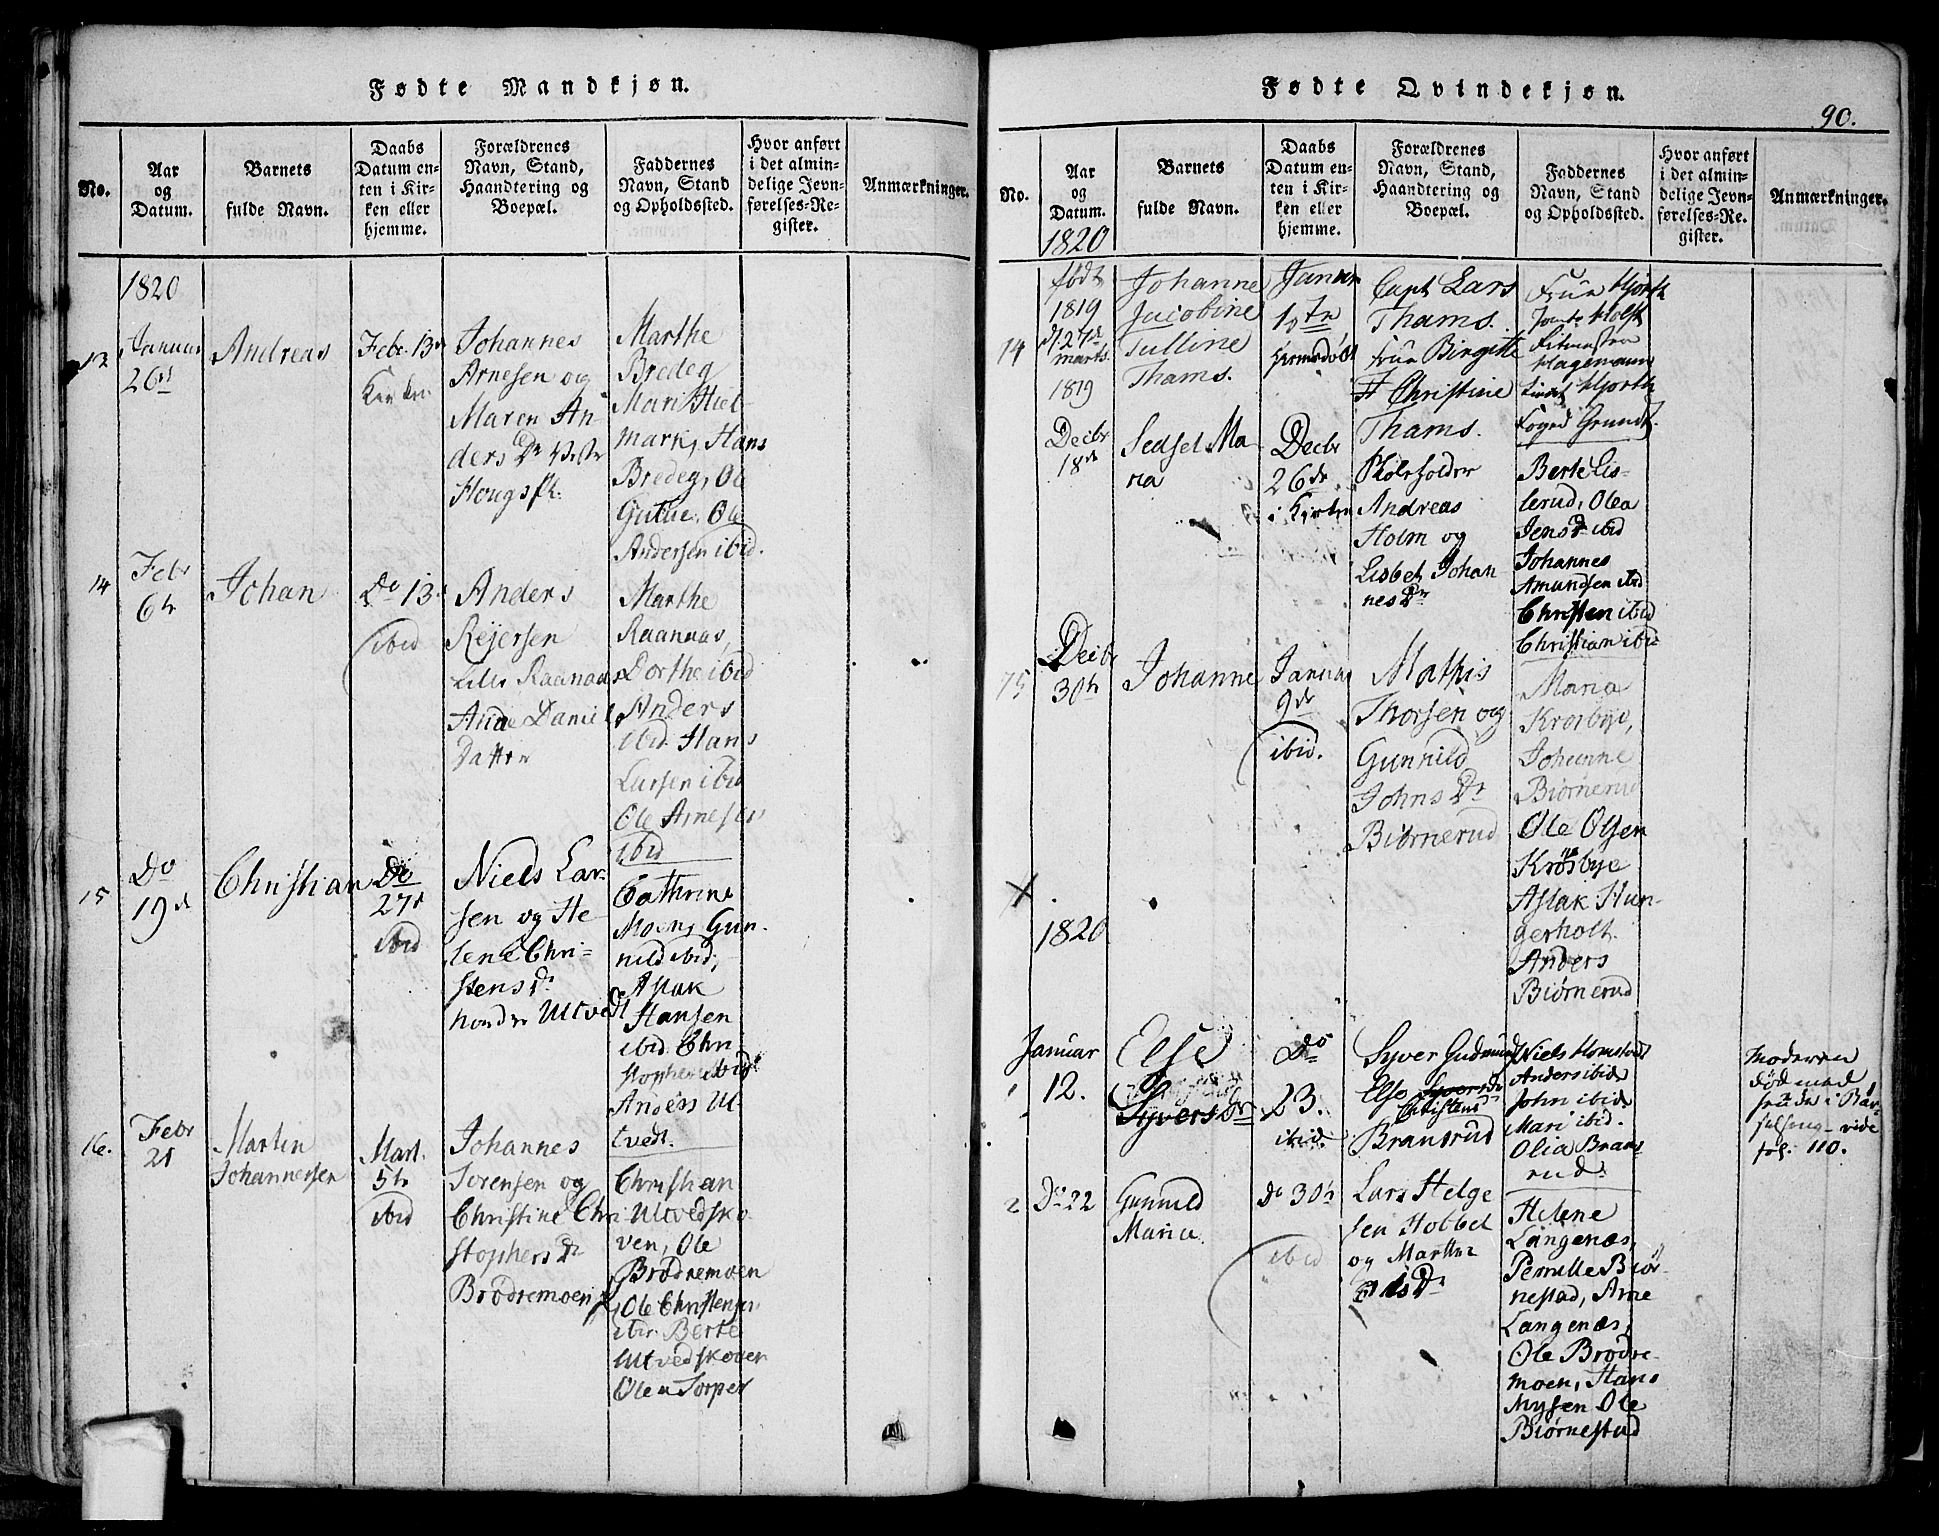 Fødte Mandkjøn.
No.
Aar
og
Datum.
Barnets
fulde Navn.
Daabs
Datum en-
ten i Kir-
ken eller
hjemme.
Forældrenes
Navn, Stand,
Haandtering og
Boepæl.
Faddernes
Navn, Stand
og Opholdssted.
Hvor anført
i det almin-
delige Jevn-
førelses-Re-
gister.
Anmærkninger.
1820
13
Januar
26de
Andreas
Febr. 13de
Kirken
Johannes
Arnesen og
Maren An
ders Dr
Hougs
Marthe
Bredeg
Mari Hiel
mark, Hans
Bredeg, Ole
Gutue, Ole
Andersen ibid.
14
Febr
6te
Johan
Do 13
ibid
Anders
Rejersen
Lille Raanaas
Anne Daniels
Datter
Marthe
Raanaas,
Dorthe ibid
Anders
ibid. Hans
Larsen ibid
Ole Arnesen
ibid
15
Do
19de
Christian
Do
27de
ibid
Niels Lar
sen og He
lene Chri-
stens Dr
Utvedt
Cathrine
Moen, Gun-
nild ibid,
Aslak
Hansen
ibid. Chri-
stopher ibid
Anders Ut-
tvedt.
16.
Febr
21
Martin
Johannessen
Mart.
5te
ibid
Johannes
Sorensen og
Christine Chri
stophers Dr
Brødremoen
Christian
Utvedsko
ven, Ole
Brødremoen
Ole Christensen
ibid. Berte
Utvedskoven
Ole Torper
Fødte Qvindekjøn.
90.
No.
Aar
og
Datum.
1820
Barnets
fulde Navn.
Daabs
Datum en-
ten i Kir-
ken eller
hjemme.
Forældrenes
Navn, Stand,
Haandtering og
Boepæl.
Faddernes
Navn, Stand
og Opholdssted.
Hvor anført
i det almin-
delige Jevn-
førelses-Re-
gister.
Anmærkninger.
74
født
1819
d 27de
marts.
1819
Johanne
Jacobine
Tulline
Thams.
Januar
1ste
Hjemmedøbt
Capt Lars
Thams.
Frue Birgitte
Christine
Thams.
Frue Hjorth
Holst
Hagemann
Hjorth
Foged Grundt.
Decbr
18de
Sedsel Ma
ria
Decbr
26de
i Kirken
Andreas
Holm og
Lisbet Johan
nes Dr
Berte Lis-
lerud, Olea
Jens Dr ibid
Johannes
Amundsen ibid
Christen ibid
Christian ibid
75
Decbr
30te
Johanne
Januar
9de
ibid.
Mathis
Thorsen og
Gunnild
Johns Dr
Biørnerud
Maria
Krosbye,
Johanne
Biørnerud
Ole Olsen
Krosbye
Aslak Hun-
gerholt.
Anders
Biørnerud
1820
1
Januar
12.
Else
Syvers Dr
Do
23.
ibid.
Syver Gudmunds
Else Syvers Dr
Christens Dr
Bransrud
Niels Homstvedt
Anders ibid
John ibid.
Mari ibid.
Olia Brans
rud.
Moderen
død med
i Bar-
selseng - vide
fol: 110.
2
Do 22
Gunnild
Maria
Do 30te
ibid
Lars Helge
sen Hobbel
og Marthe
Dr
Helene
Langenæs,
Pernille Biør-
nestad, Arne
Langenæs,
Ole Brødre-
moen, Hans
Mysen Ole
Biørnestad